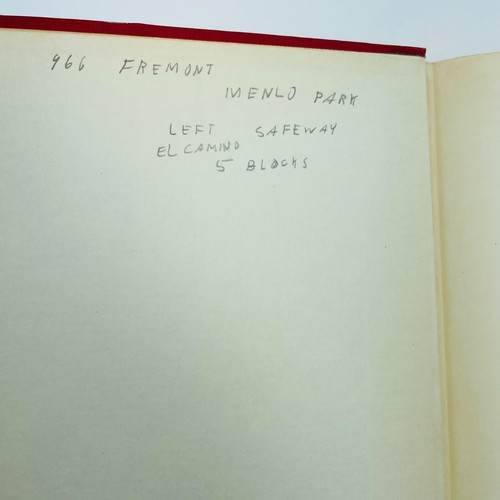 966 FREMONT
MENLO PARK
LEFT SAFEWAY
EL CAMINO
5 BLOCKS